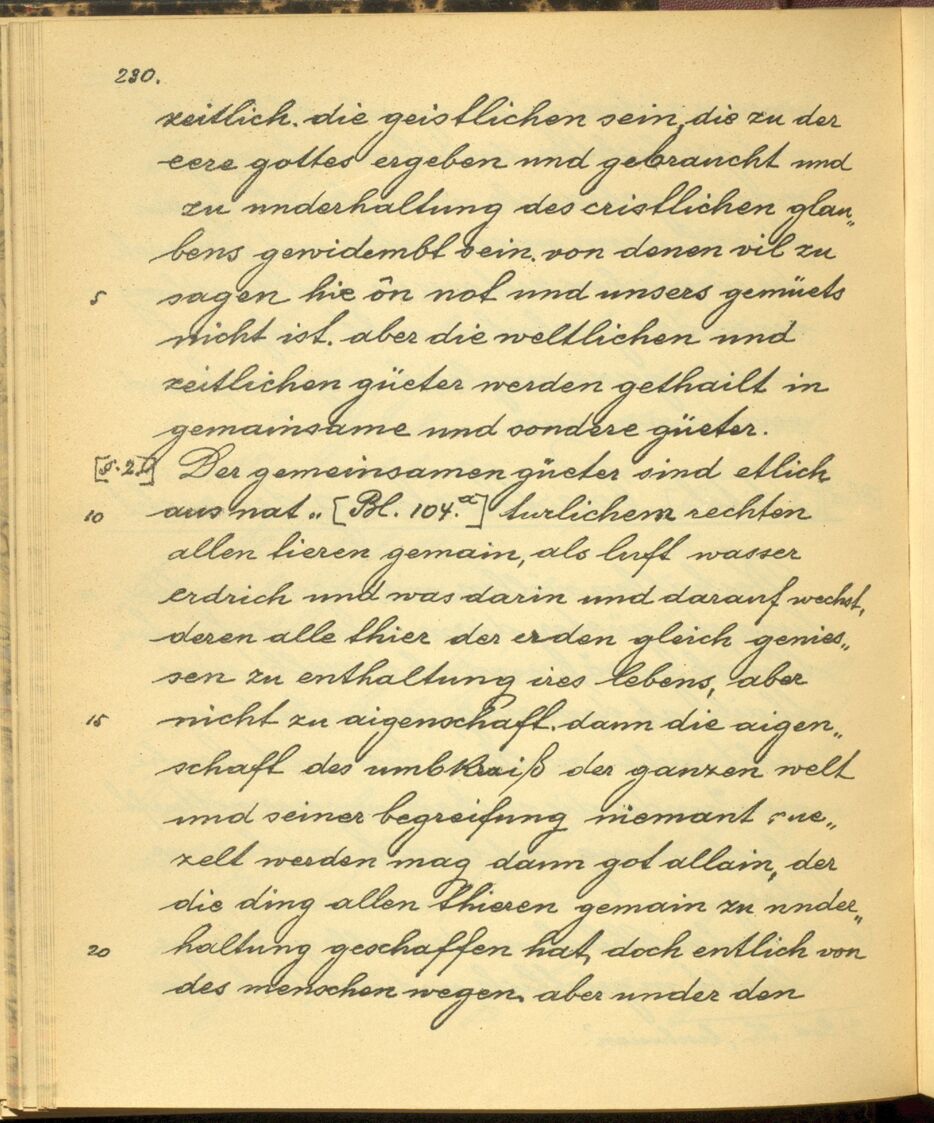 230.
zeitlich. die geistlichen sein, die zu der
eere gottes ergeben und gebraucht und
zu underhaltung des cristlichen glau„
bens gewidembt sein. von denen vil zu
5 sagen hie ôn not und unsers gemüets
nicht ist. aber die weltlichen und
zeitlichen güeter werden gethailt in
gemainsame und sondere güeter.
[§. 2.] Der gemeinsamen güeter sind etlich
10 aus nat„ [Bl. 104.a] turlichem rechten
allen tieren gemain, als luft wasser
erdrich und was darin und darauf wechst,
deren alle thier der erden gleich genies„
sen zu enthaltung ires lebens, aber
15 nicht zu aigenschaft. dann die aigen„
schaft des umbkraiß der ganzen welt
und seiner begreifung niemant
zelt werden mag dann got allain, der
die ding allen thieren gemain zu under„
20 haltung geschaffen hat, doch entlich von
des menschen wegen. aber under den